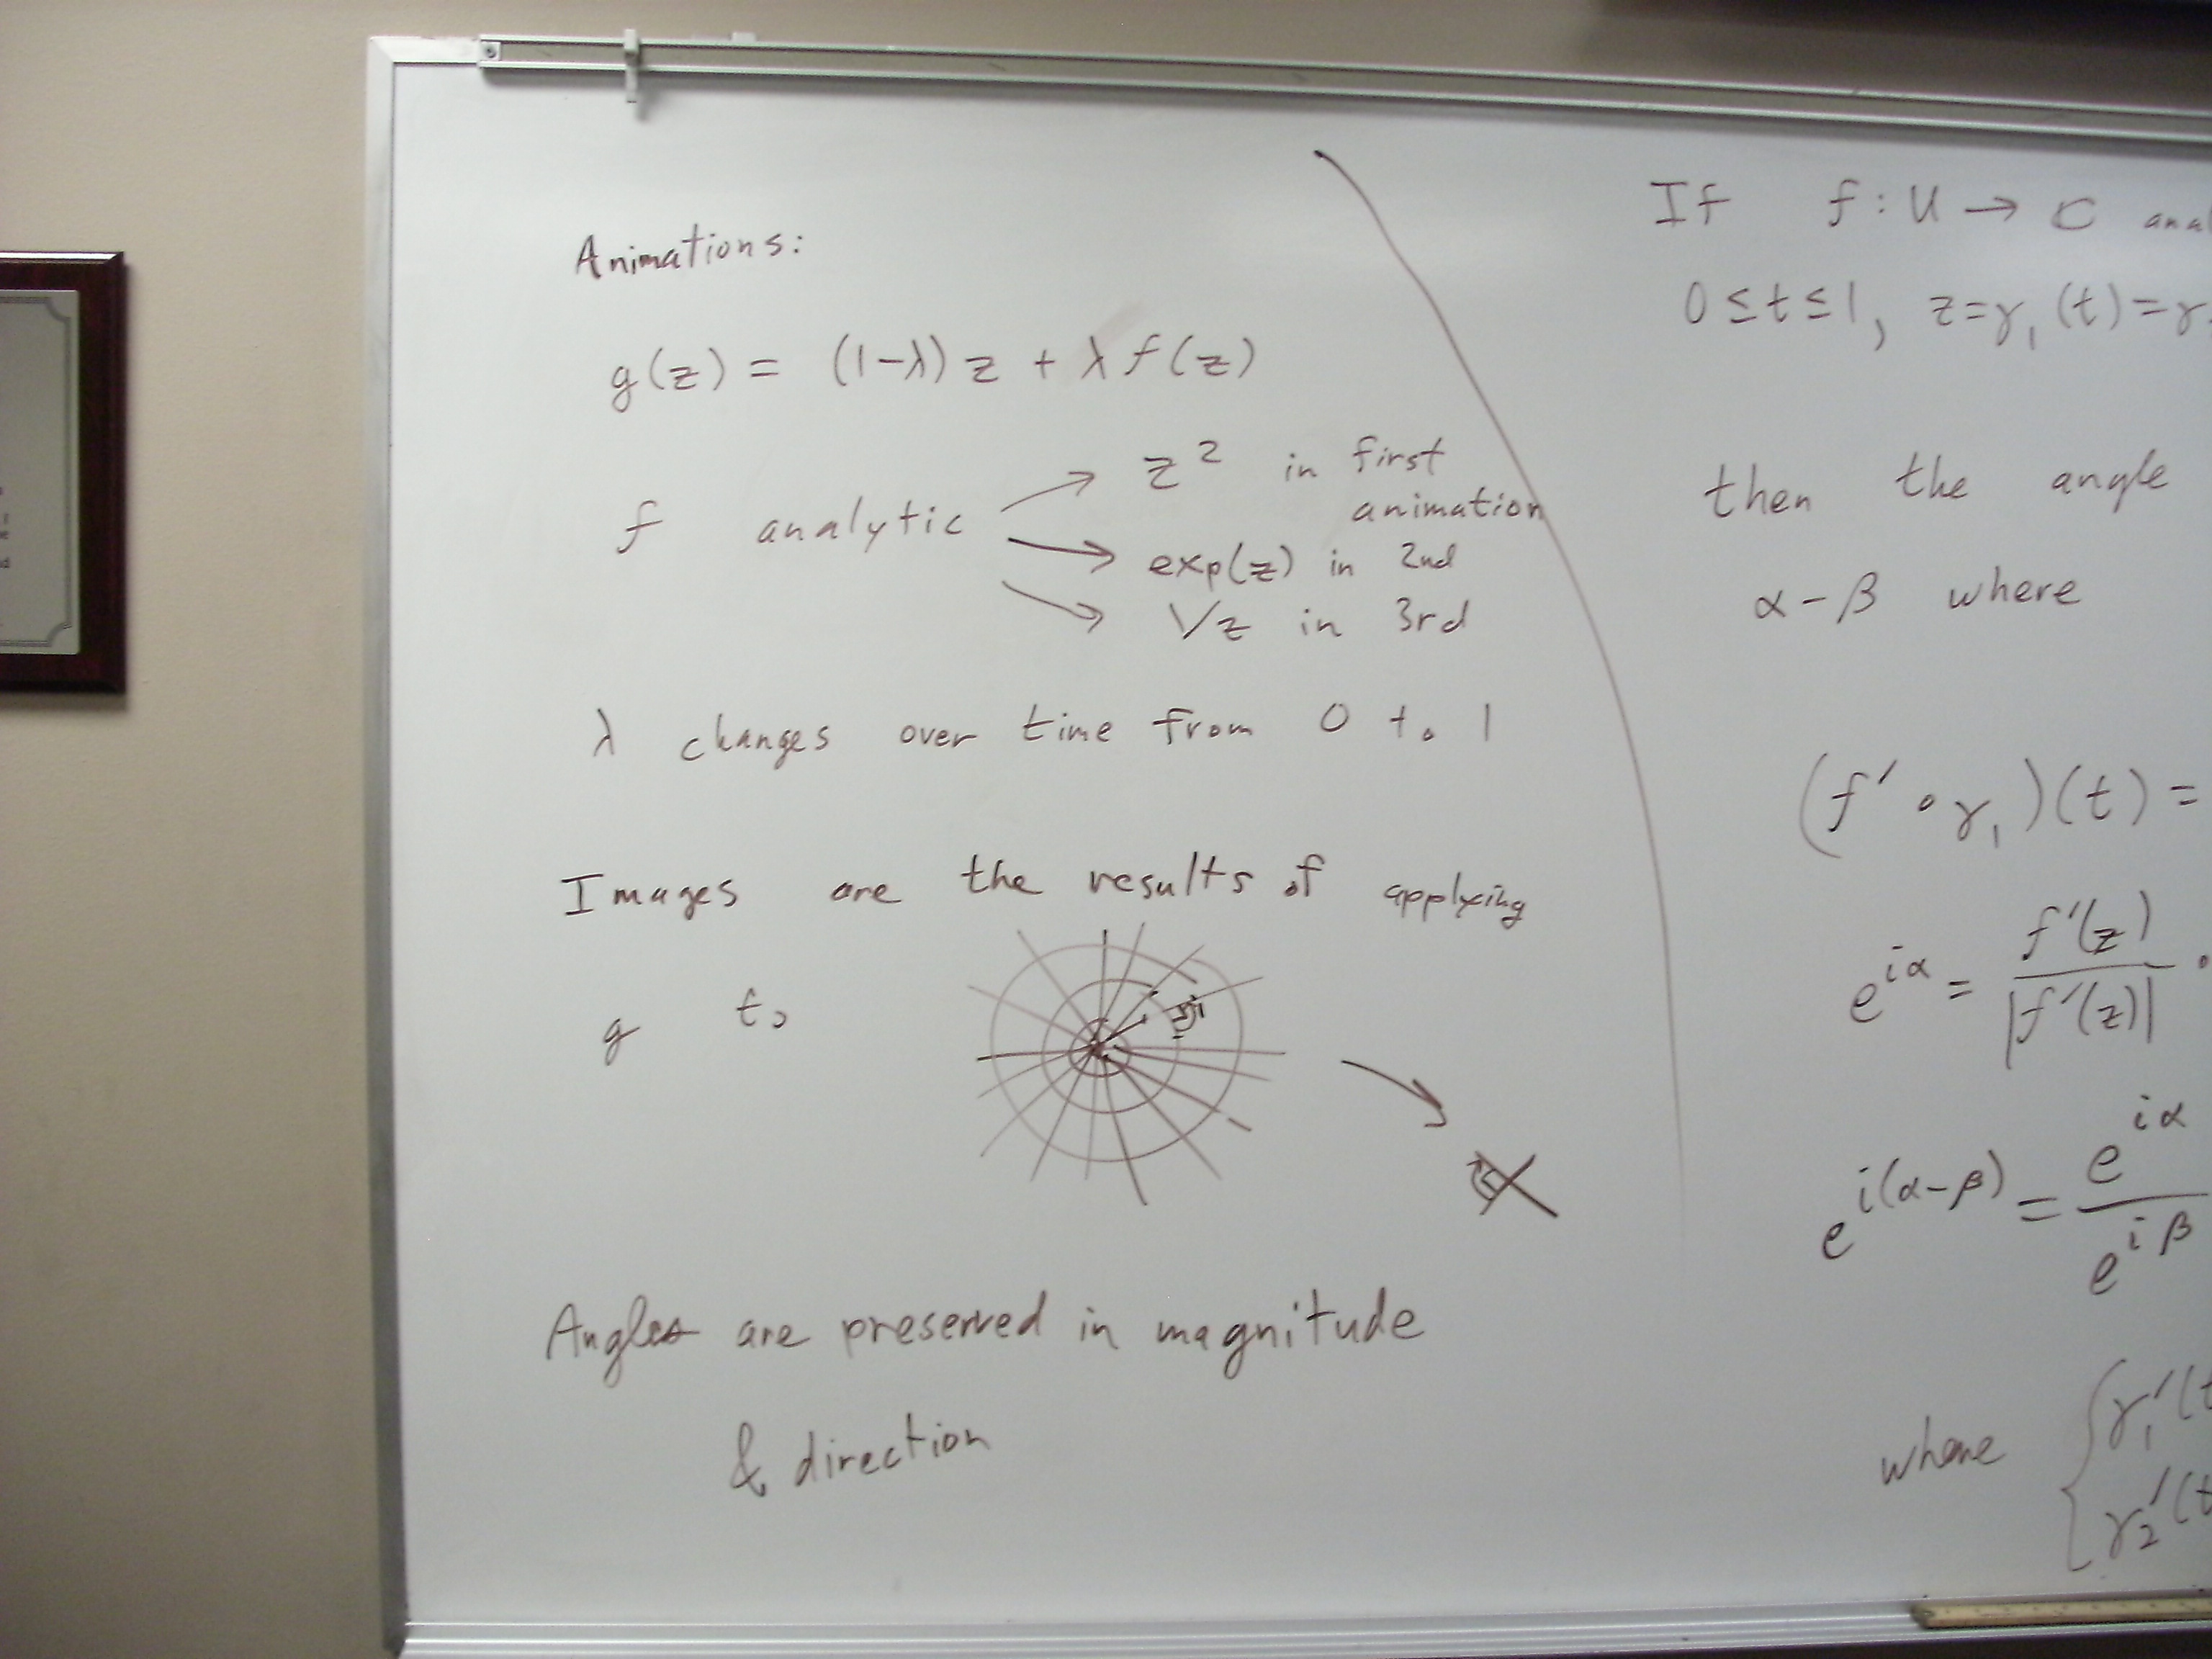 Animations:
g(z) = (1-λ) z + λ f(z)
f analytic → z² in first
animation
→ exp(z) in 2nd
→ 1/z in 3rd
λ changes over time from 0 to 1
Images are the results of applying
g to
Angles are preserved in magnitude
& direction
If f : U → ℂ
0 ≤ t ≤ 1, z = γ₁ (t) = γ
then the angle
α - β where
(f' ∘ γ₁)(t) =
e^{iα} = f'(z) / |f'(z)| ·
e^{i(α-β)} = e^{iα} / e^{iβ}
where { γ₁'(t
γ₂'(t